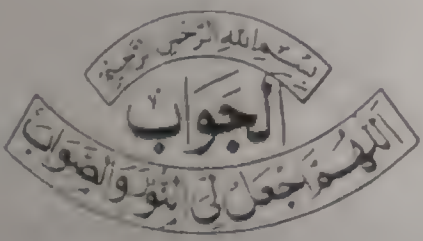 بِسْمِ اللهِ الرَّحْمٰنِ الرَّحِيْمِ
اَلْجَوَابُ
اَللّٰهُمَّ اجْعَلْ لِي النُّوْرَ وَالصَّوَابَ